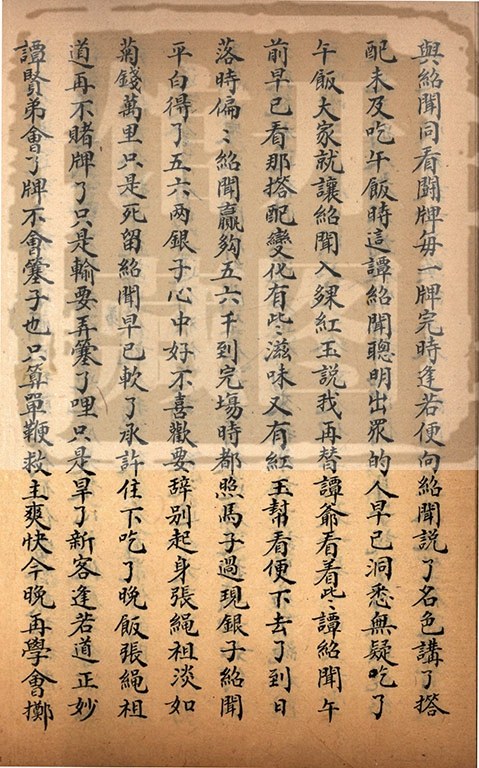 與紹聞同看鬪牌每一牌完時逢若便向紹聞說了名色講了搭
配未及吃午飯時這譚紹聞聰明出眾的人早已洞悉無疑吃了
午飯大家就讓紹聞入夥紅玉說我再替譚爺看着些譚紹聞午
前早已看那搭配變化有些滋味又有紅玉幫看便下去了到日
落時偏〻紹聞贏夠五六千到完塲時都照馬子過現銀子紹聞
平白得了五六兩銀子心中好不喜歡要辞別起身張繩祖淡如
菊錢萬里只是死留紹聞早已軟了承許住下吃了晚飯張繩祖
道再不賭牌了只是輸要弄簺了哩只是旱了新客逢若道正妙
譚賢弟會了牌不會簺子也只算單鞭救主爽快今晚再學會擲